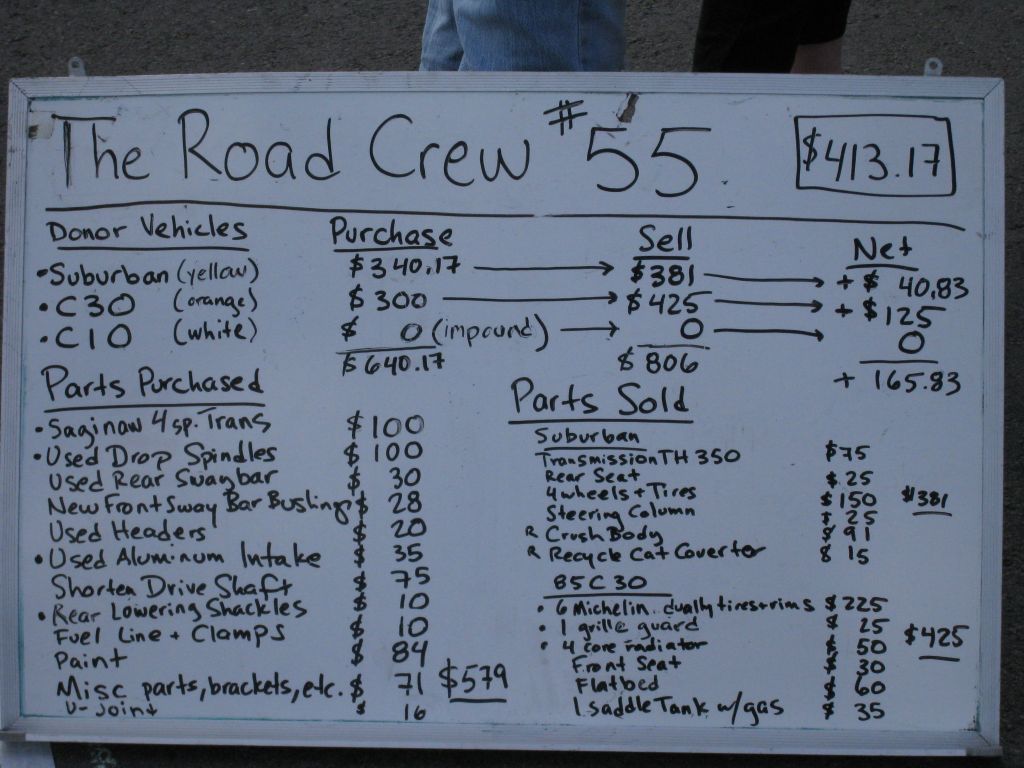 The Road Crew #55 $413.17
Donor Vehicles Purchase Sell Net
•Suburban (yellow) $340.17 → $381 → +$ 40.83
•C30 (orange) $300 → $425 → +$125
•C10 (white) $ 0 (impound) → 0 → 0
$640.17 $806 + 165.83
Parts Purchased
•Saginaw 4sp. Trans $100
•Used Drop Spindles $100
Used Rear Swaybar $30
New Front Sway Bar Bushing $28
Used Headers $20
•Used Aluminum Intake $35
Shorten Drive Shaft $75
•Rear Lowering Shackles $10
Fuel Line + Clamps $10
Paint $84
Misc parts, brackets, etc. $71 $579
U-Joint $16
Parts Sold
Suburban
Transmission TH 350 $75
Rear Seat $25
4 wheels + Tires $150 $381
Steering Column $25
R Crush Body $91
R Recycle Cat Coverter $15
85 C30
• 6 Michelin dually tires+rims $225
• 1 grille guard $25
• 4 core radiator $50 $425
Front Seat $30
Flatbed $60
1 saddle Tank w/gas $35